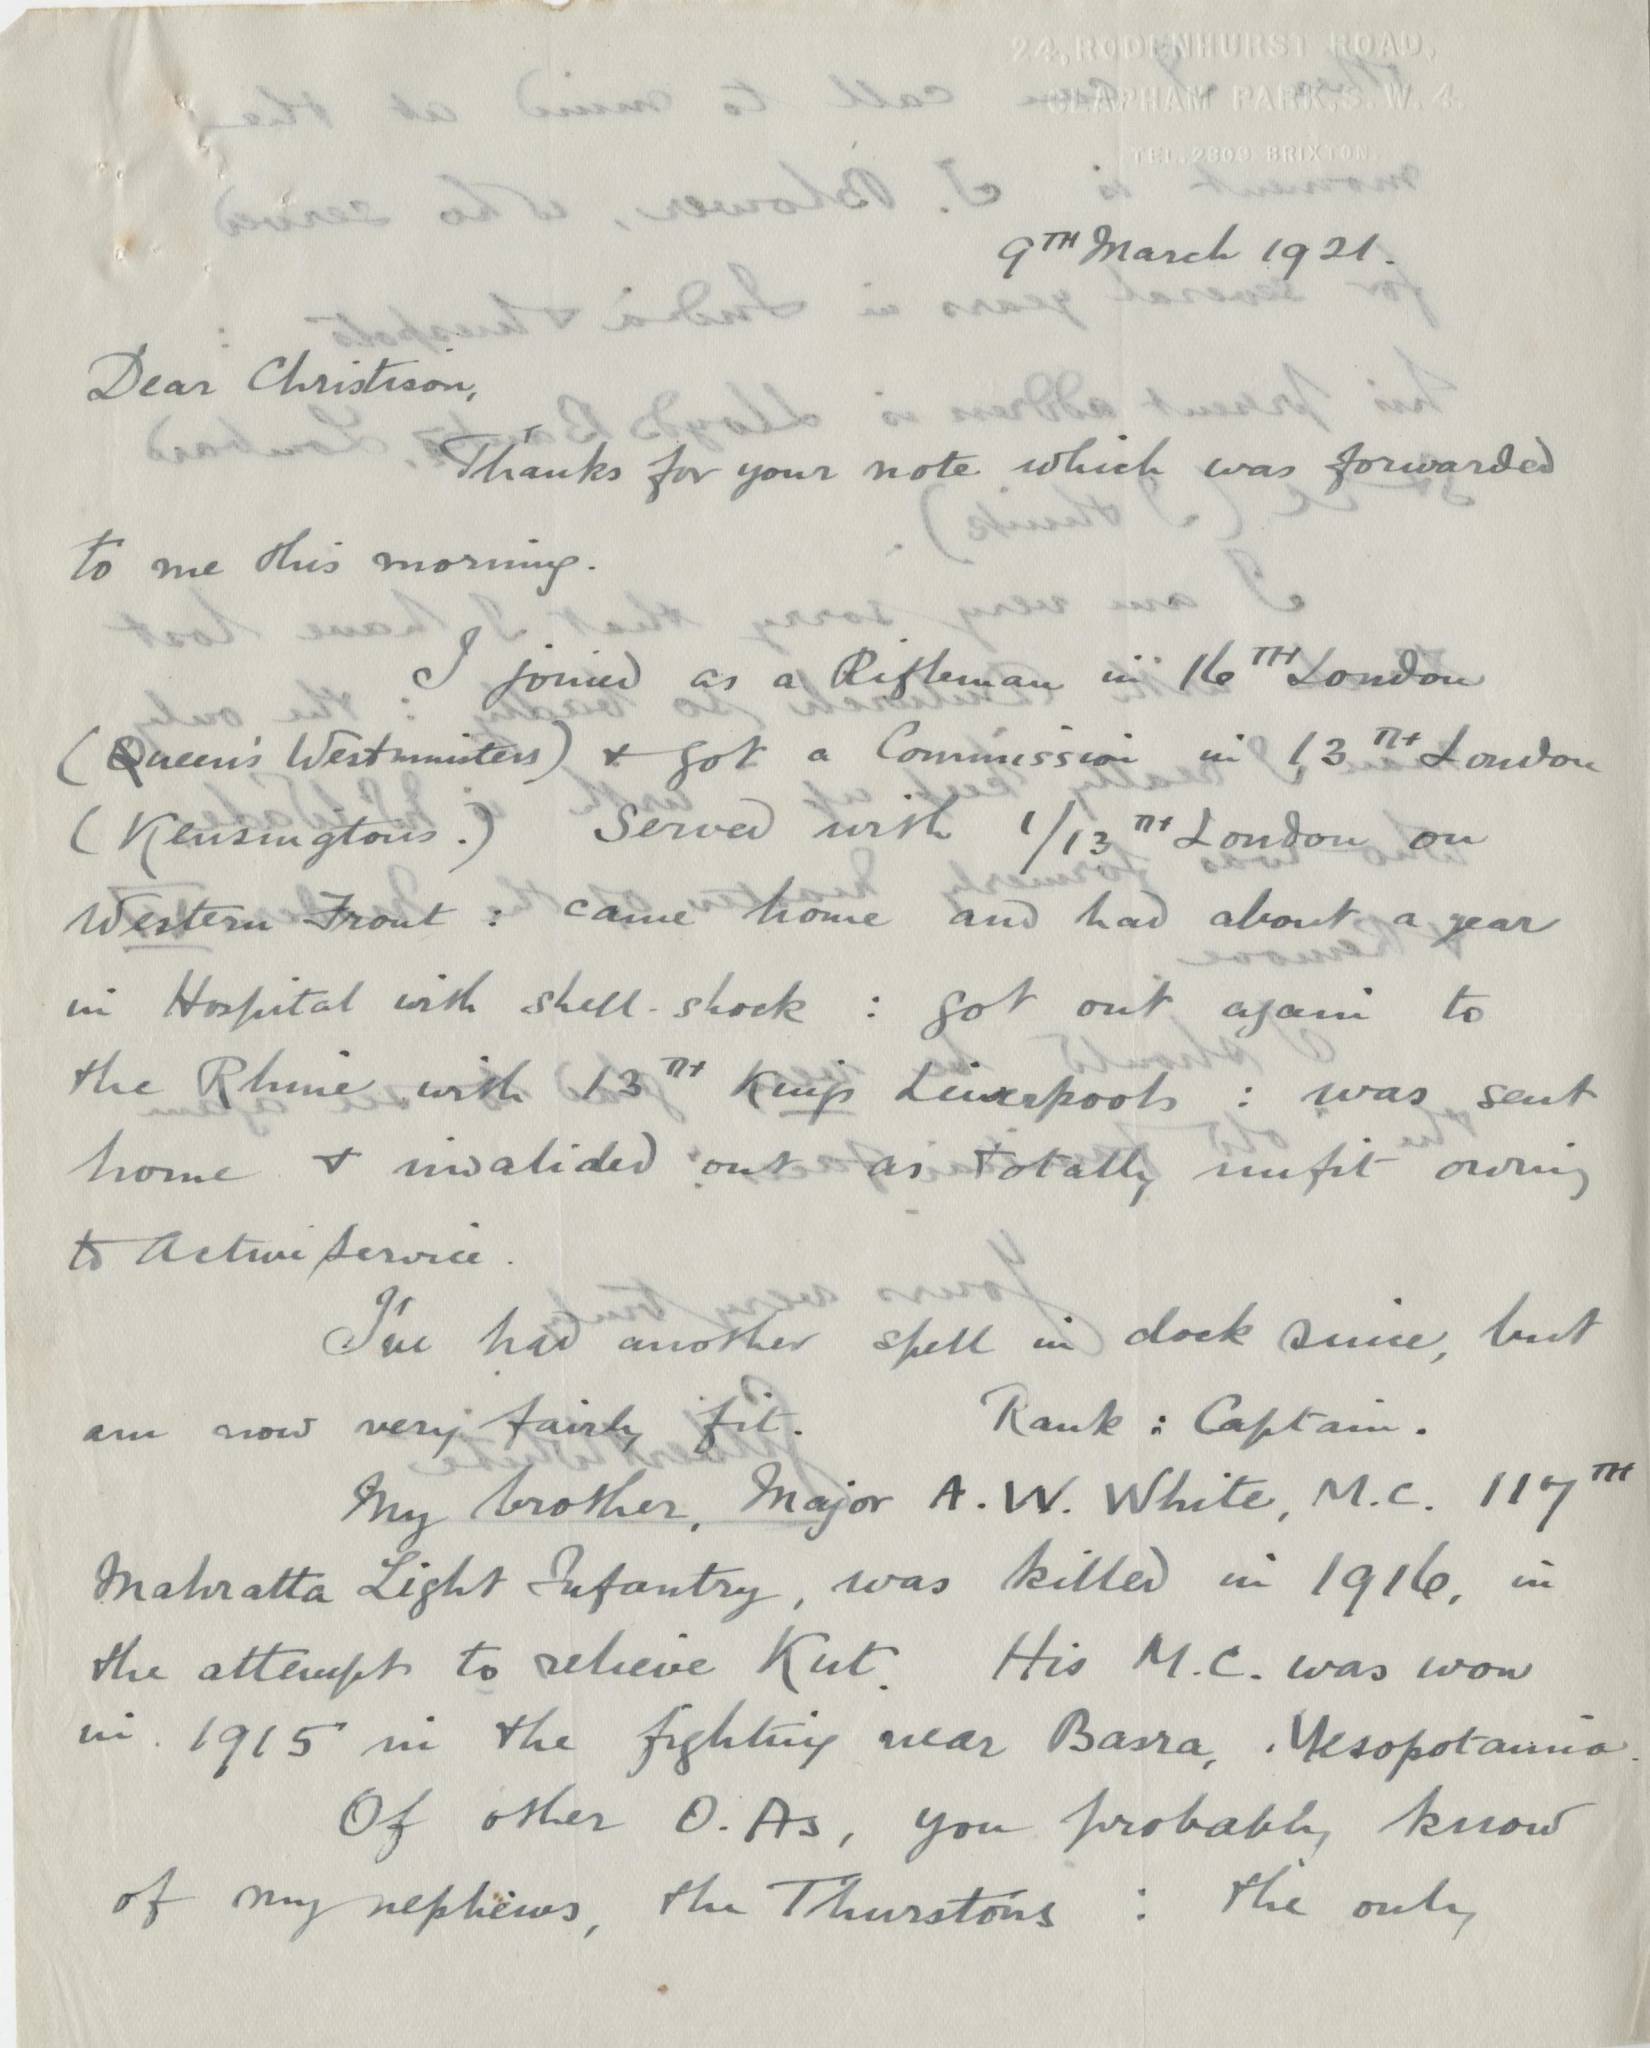 24, RODENHURST ROAD,
CLAPHAM PARK, S.W.4.
TEL. 2809 BRIXTON.
9TH March 1921.
Dear Christison,
Thanks for your note which was forwarded
to me this morning.
I joined as a Rifleman in 16TH London
(Queen's Westminsters) & got a Commission in 13TH London
(Kensingtons.) Served with 1/13TH London on
Western Front : came home and had about a year
in Hospital with shell-shock : got out again to
the Rhine with 13TH Kings Liverpools : was sent
home & invalided out as totally unfit owing
to Active Service.
I've had another spell in dock since, but
am now very fairly fit. Rank : Captain.
My brother, Major A. W. White, M.C. 117TH
Mahratta Light Infantry, was killed in 1916, in
the attempt to relieve Kut. His M.C. was won
in 1915 in the fighting near Basra, Mesopotamia.
Of other O.As, you probably know
of my nephews, the Thurstons : the only